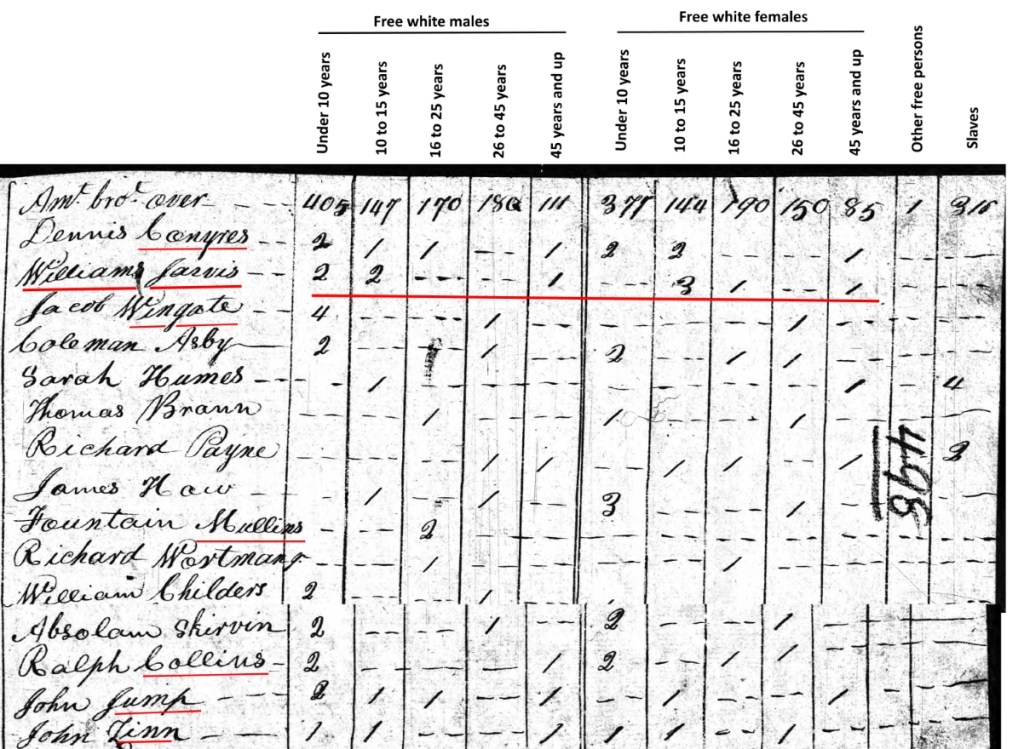 Free white males Free white females
Under 10 years 10 to 15 years 16 to 25 years 26 to 45 years 45 years and up Under 10 years 10 to 15 years 16 to 25 years 26 to 45 years 45 years and up Other free persons Slaves
Amt. brot. over - - - 405 147 170 180 111 377 144 190 150 85 1 315
Dennis Conyres - - 2 1 1 -- 1 2 2 - - 1
William Jarvis -- 2 2 --- -- 1 -- 3 1 -- 1
Jacob Wingate - 4 - - 1 - - - - 1 - - -
Coleman Asby 2 - 1 - 2 - 1 1 - - -
Sarah Humes - - 1 - - - - - - - 1 - 4
Thomas Brann - - 1 - - 1 - 1 - -
Richard Payne - - - 1 1 - 1 1 - 1 2
James How - - 1 - 1 - 3 - - 1 -
498
Fountain Mullins - - 2 - - - - - - -
Richard Wortman - - 1 - - - - 1 - -
William Childers 2 1
Absolam Skirvin 2 - - 1 - 2 - - 1 - - -
Ralph Collins - 2 - - - 1 2 - 1 1 - - -
John Jump - - 2 1 1 - 1 - 1 - - 1 - -
John Zinn - 1 1 - - 1 1 1 - 1 - - -